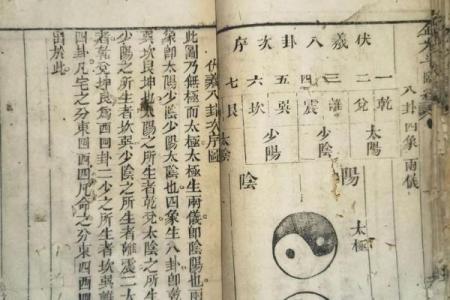 八卦四象兩儀
伏羲八卦次序
一乾
二兌
三離
四震
五巽
六坎
七艮
太陽
少陰
少陽
太陰
陽
陰
太極
伏羲八卦次序圖
此圖乃無極而太極太極生兩儀即陰陽也兩
象即太陽少陰少陽太陰也四象生八卦即乾
巽坎艮坤也太陽之所生者乾兌太陰之所生
少陽之所生者坎巽少陰之所生者離震二太
者乾兌坤艮為西四卦二少之所生者坎巽離
四卦凡宅之分東四西四凡命之分東四西四
昉於此